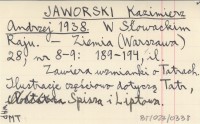 JAWORSKI Kazimierz
Andrzej 1938. W Słowackim
Raju. – Ziemia (Warszawa)
28, nr 8-9: 189-194, il
Zawiera wzmianki o Tatrach.
Ilustracje częściowo dotyczą Tatr,
Spisza i Liptowa.
MT